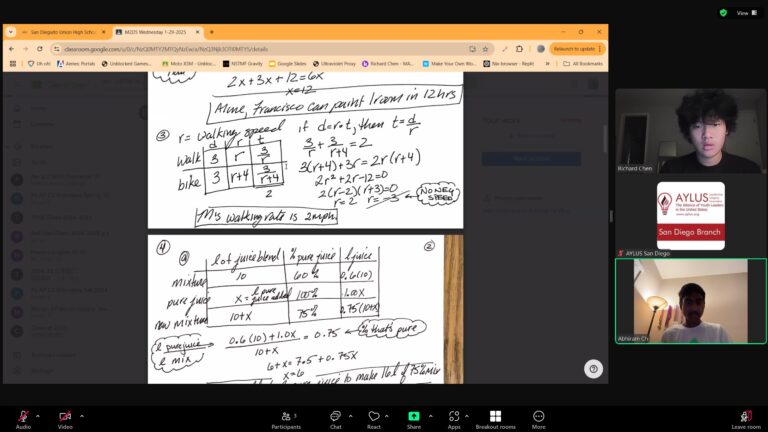 View
San Dieguito Union High Scho
M2DS Wednesday 1-29-2025
Relaunch to update
Uh oh!
Aeries: Portals
Unblocked Games...
Moto X3M - Unbloc...
NSTMF Gravity
Google Slides
Ultraviolet Proxy
Richard Chen - MA...
Make Your Own Wo...
New browser - Replit
All Bookmarks
2x+3x+12=6x
x=12
Alone, Francisco can paint 1 room in 12 hrs
③ r= walking speed if d=r·t, then t=d/r
d r t
walk 3 r 3/r
bike 3 r+4 3/r+4
2
3/r + 3/r+4 = 2
3(r+4)+3r=2r(r+4)
2r²+2r-12=0
2(r-2)(r+3)=0
r=2 r=-3 NO NEG SPEED
M's walking rate is 2mph.
④ ②
a l of juice blend % pure juice l juice
mixture 10 60% 0.6(10)
pure juice x= l pure juice added 100% 1.00x
new mixture 10+x 75% 0.75(10+x)
l pure juice
l mix
0.6(10)+1.0x / 10+x = 0.75 % that's pure
6+x=7.5+0.75x
x=6
juice to make 16l of 75% mix
Richard Chen
AYLUS
The Alliance of Youth Leaders
in the United States
www.aylus.org
San Diego Branch
AYLUS San Diego
Abhiram Ch
Audio
Video
3
Participants
Chat
React
Share
Apps
Breakout rooms
More
Leave room